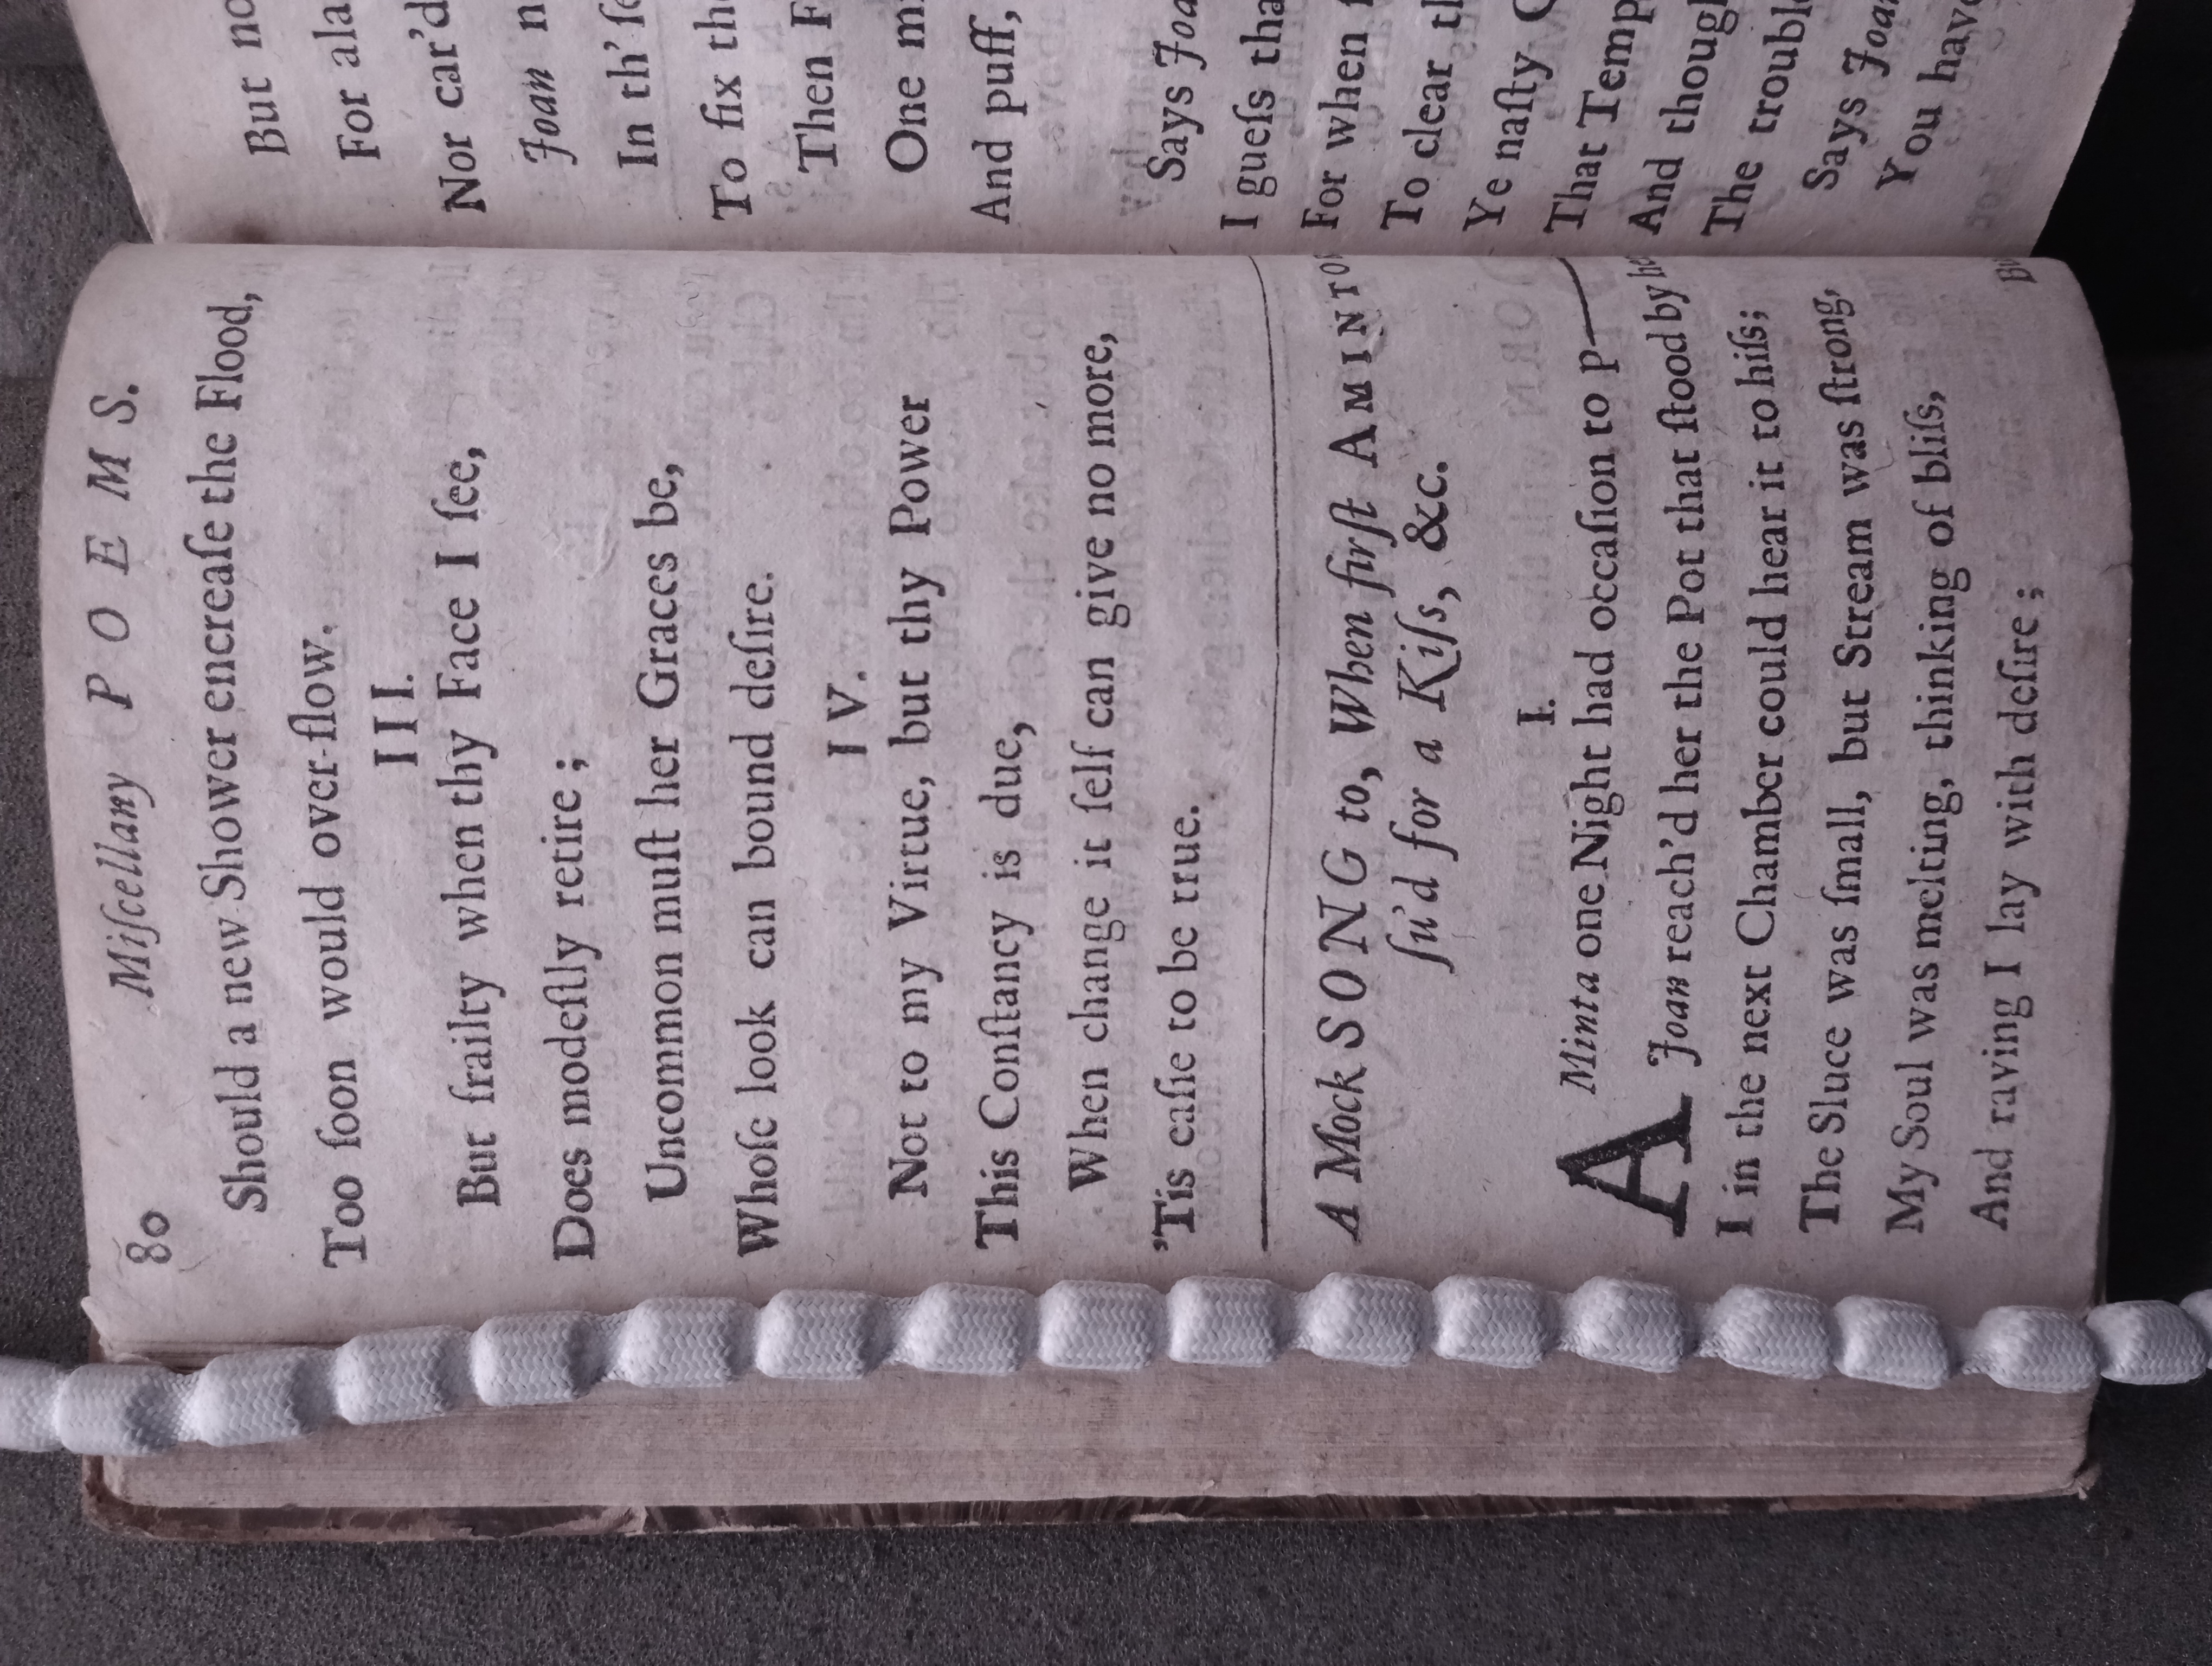 80 Miſcellany POEMS.
Should a new Shower encreaſe the Flood,
Too ſoon would over-flow.
III.
But frailty when thy Face I ſee,
Does modeſtly retire;
Uncommon muſt her Graces be,
Whoſe look can bound deſire.
IV.
Not to my Virtue, but thy Power
This Conſtancy is due,
When change it ſelf can give no more,
'Tis eaſie to be true.
A Mock SONG to, When firſt AMINTOR
ſu'd for a Kiſs, &c.
I.
A Minta one Night had occaſion to p—
Joan reach'd her the Pot that ſtood by he
I in the next Chamber could hear it to hiſs;
The Sluce was ſmall, but Stream was ſtrong,
My Soul was melting, thinking of bliſs,
And raving I lay with deſire;
Bu
But no
For ala
Nor car'd
Joan n
In th' ſe
To fix the
Then F
One mi
And puff,
Says Joa
I gueſs tha
For when
To clear th
Ye naſty
That Temp
And though
The trouble
Says Joan
You have